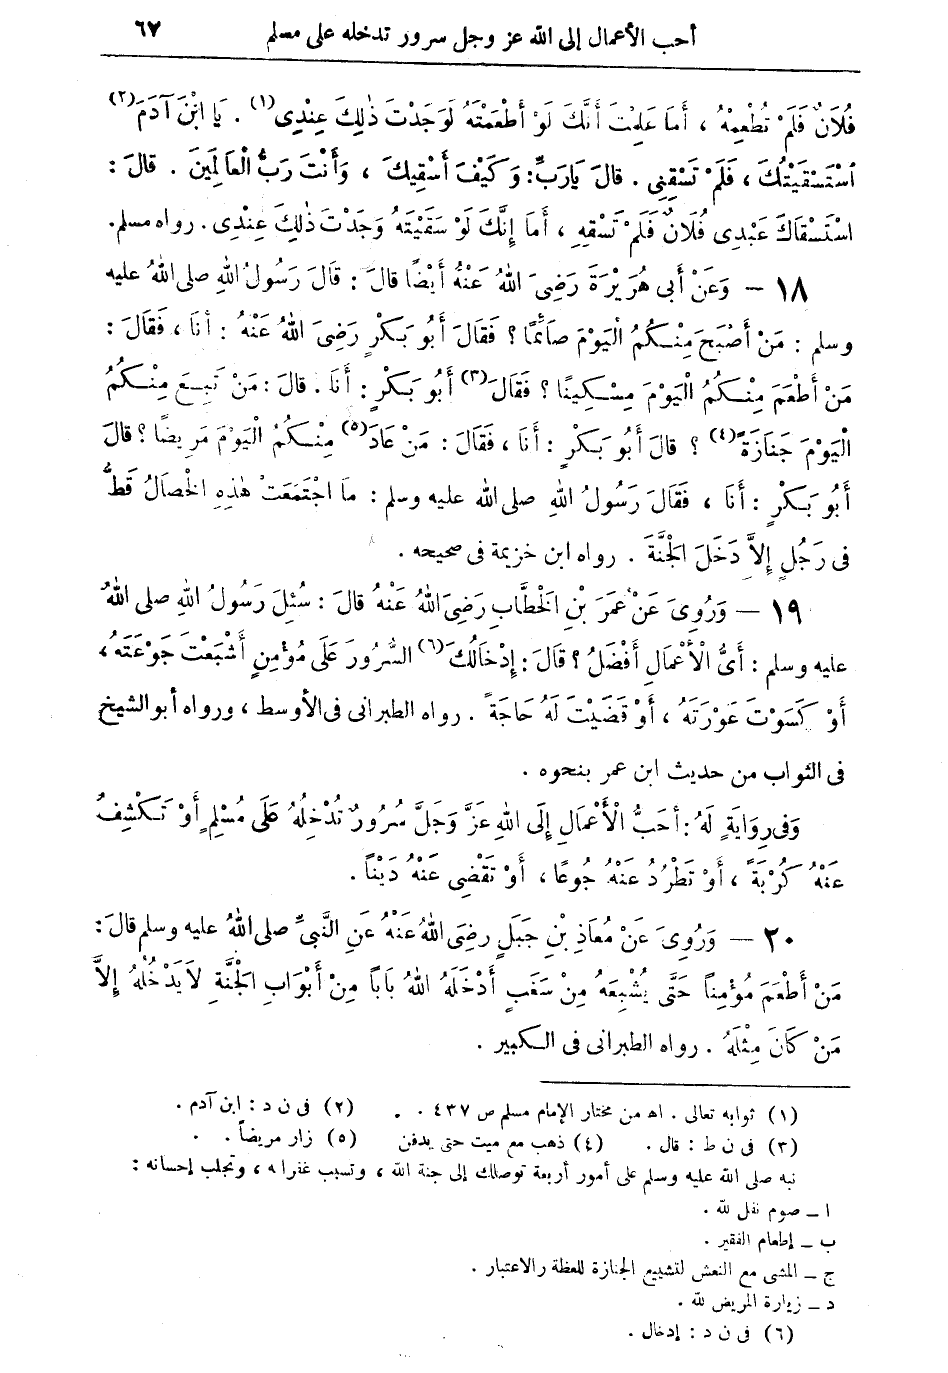 أحب الأعمال إلى الله عز وجل سرور تدخله على مسلم ٦٧
فُلَانٌ فَلَمْ تُطْعِمْهُ ، أَمَا عَلِمْتَ أَنَّكَ لَوْ أَطْعَمْتَهُ لَوَجَدْتَ ذَلِكَ عِنْدِى(١) . يَا ابْنَ آدَمَ(٢)
اسْتَسْقَيْتُكَ ، فَلَمْ تَسْقِنِى . قالَ يَارَبِّ : وَكَيْفَ أَسْقِيكَ ، وَأَنْتَ رَبُّ الْعَالَمِينَ . قالَ :
اسْتَسْقَاكَ عَبْدِى فُلَانٌ فَلَمْ تَسْقِهِ ، أَمَا إِنَّكَ لَوْ سَقَيْتَهُ وَجَدْتَ ذَلِكَ عِنْدِى . رواه مسلم .
١٨ — وَعَنْ أَبى هُرَيْرَةَ رَضِىَ اللهُ عَنْهُ أَيْضًا قالَ : قَالَ رَسُولُ اللهِ صلى اللهُ عليه
وسلم : مَنْ أَصْبَحَ مِنْكُمُ الْيَوْمَ صَائِمًا ؟ فَقَالَ أَبُو بَكْرٍ رَضِىَ اللهُ عَنْهُ : أَنَا ، فَقَالَ :
مَنْ أَطْعَمَ مِنْكُمُ الْيَوْمَ مِسْكِينًا ؟ فَقَالَ(٣) أَبُو بَكْرٍ : أَنَا . قالَ : مَنْ تَبِعَ مِنْكُمُ
الْيَوْمَ جَنَازَةً(٤) ؟ قالَ أَبُو بَكْرٍ : أَنَا ، فَقَالَ : مَنْ عَادَ(٥) مِنْكُمُ الْيَوْمَ مَرِيضًا ؟ قالَ
أَبُو بَكْرٍ : أَنَا ، فَقَالَ رَسُولُ اللهِ صلى الله عليه وسلم : مَا اجْتَمَعَتْ هٰذِهِ الْخِصَالُ قَطُّ
فى رَجُلٍ إِلاَّ دَخَلَ الْجَنَّةَ . رواه ابن خزيمة فى صحيحه .
١٩ — وَرُوِىَ عَنْ عُمَرَ بْنِ الْخَطَّابِ رَضِىَ اللهُ عَنْهُ قالَ : سُئِلَ رَسُولُ اللهِ صلى اللهُ
عليه وسلم : أَىُّ الْأَعْمَالِ أَفْضَلُ ؟ قَالَ : إِدْخَالُكَ(٦) السُّرُورَ عَلَى مُؤْمِنٍ أَشْبَعْتَ جَوْعَتَهُ ،
أَوْ كَسَوْتَ عَوْرَتَهُ ، أَوْ قَضَيْتَ لَهُ حَاجَةً . رواه الطبرانى فى الأوسط ، ورواه أبو الشيخ
فى الثواب من حديث ابن عمر بنحوه .
وَفى رِوَايَةٍ لَهُ : أَحَبُّ الْأَعْمَالِ إِلَى اللهِ عَزَّ وَجَلَّ سُرُورٌ تُدْخِلُهُ عَلَى مُسْلِمٍ أَوْ تَكْشِفُ
عَنْهُ كُرْبَةً ، أَوْ تَطْرُدُ عَنْهُ جُوعًا ، أَوْ تَقْضِى عَنْهُ دَيْنًا .
٢٠ — وَرُوِىَ عَنْ مُعَاذِ بْنِ جَبَلٍ رضِىَ اللهُ عَنْهُ عَنِ النَّبىِّ صلى اللهُ عليه وسلم قالَ :
مَنْ أَطْعَمَ مُؤْمِناً حَتَّى يُشْبِعَهُ مِنْ سَغَبٍ أَدْخَلَهُ اللهُ بَاباً مِنْ أَبْوَابِ الْجَنَّةِ لاَيَدْخُلُهُ إِلاَّ
مَنْ كَانَ مِثْلَهُ . رواه الطبرانى فى الكبير .
(١) ثوابه تعالى . اه من مختار الإمام مسلم ص ٤٣٧ . (٢) فى ن د : ابن آدم .
(٣) فى ن ط : قال . (٤) ذهب مع ميت حتى يدفن (٥) زار مريضاً .
نبه صلى الله عليه وسلم على أمور أربعة توصلك إلى جنة الله ، وتسبب غفرانه ، وتجلب إحسانه :
ا ـ صوم نفل لله .
ب ـ إطعام الفقير .
ج ـ المشى مع النعش لتشييع الجنازة للعظة والاعتبار .
د ـ زيارة المريض لله .
(٦) فى ن د : إدخال .